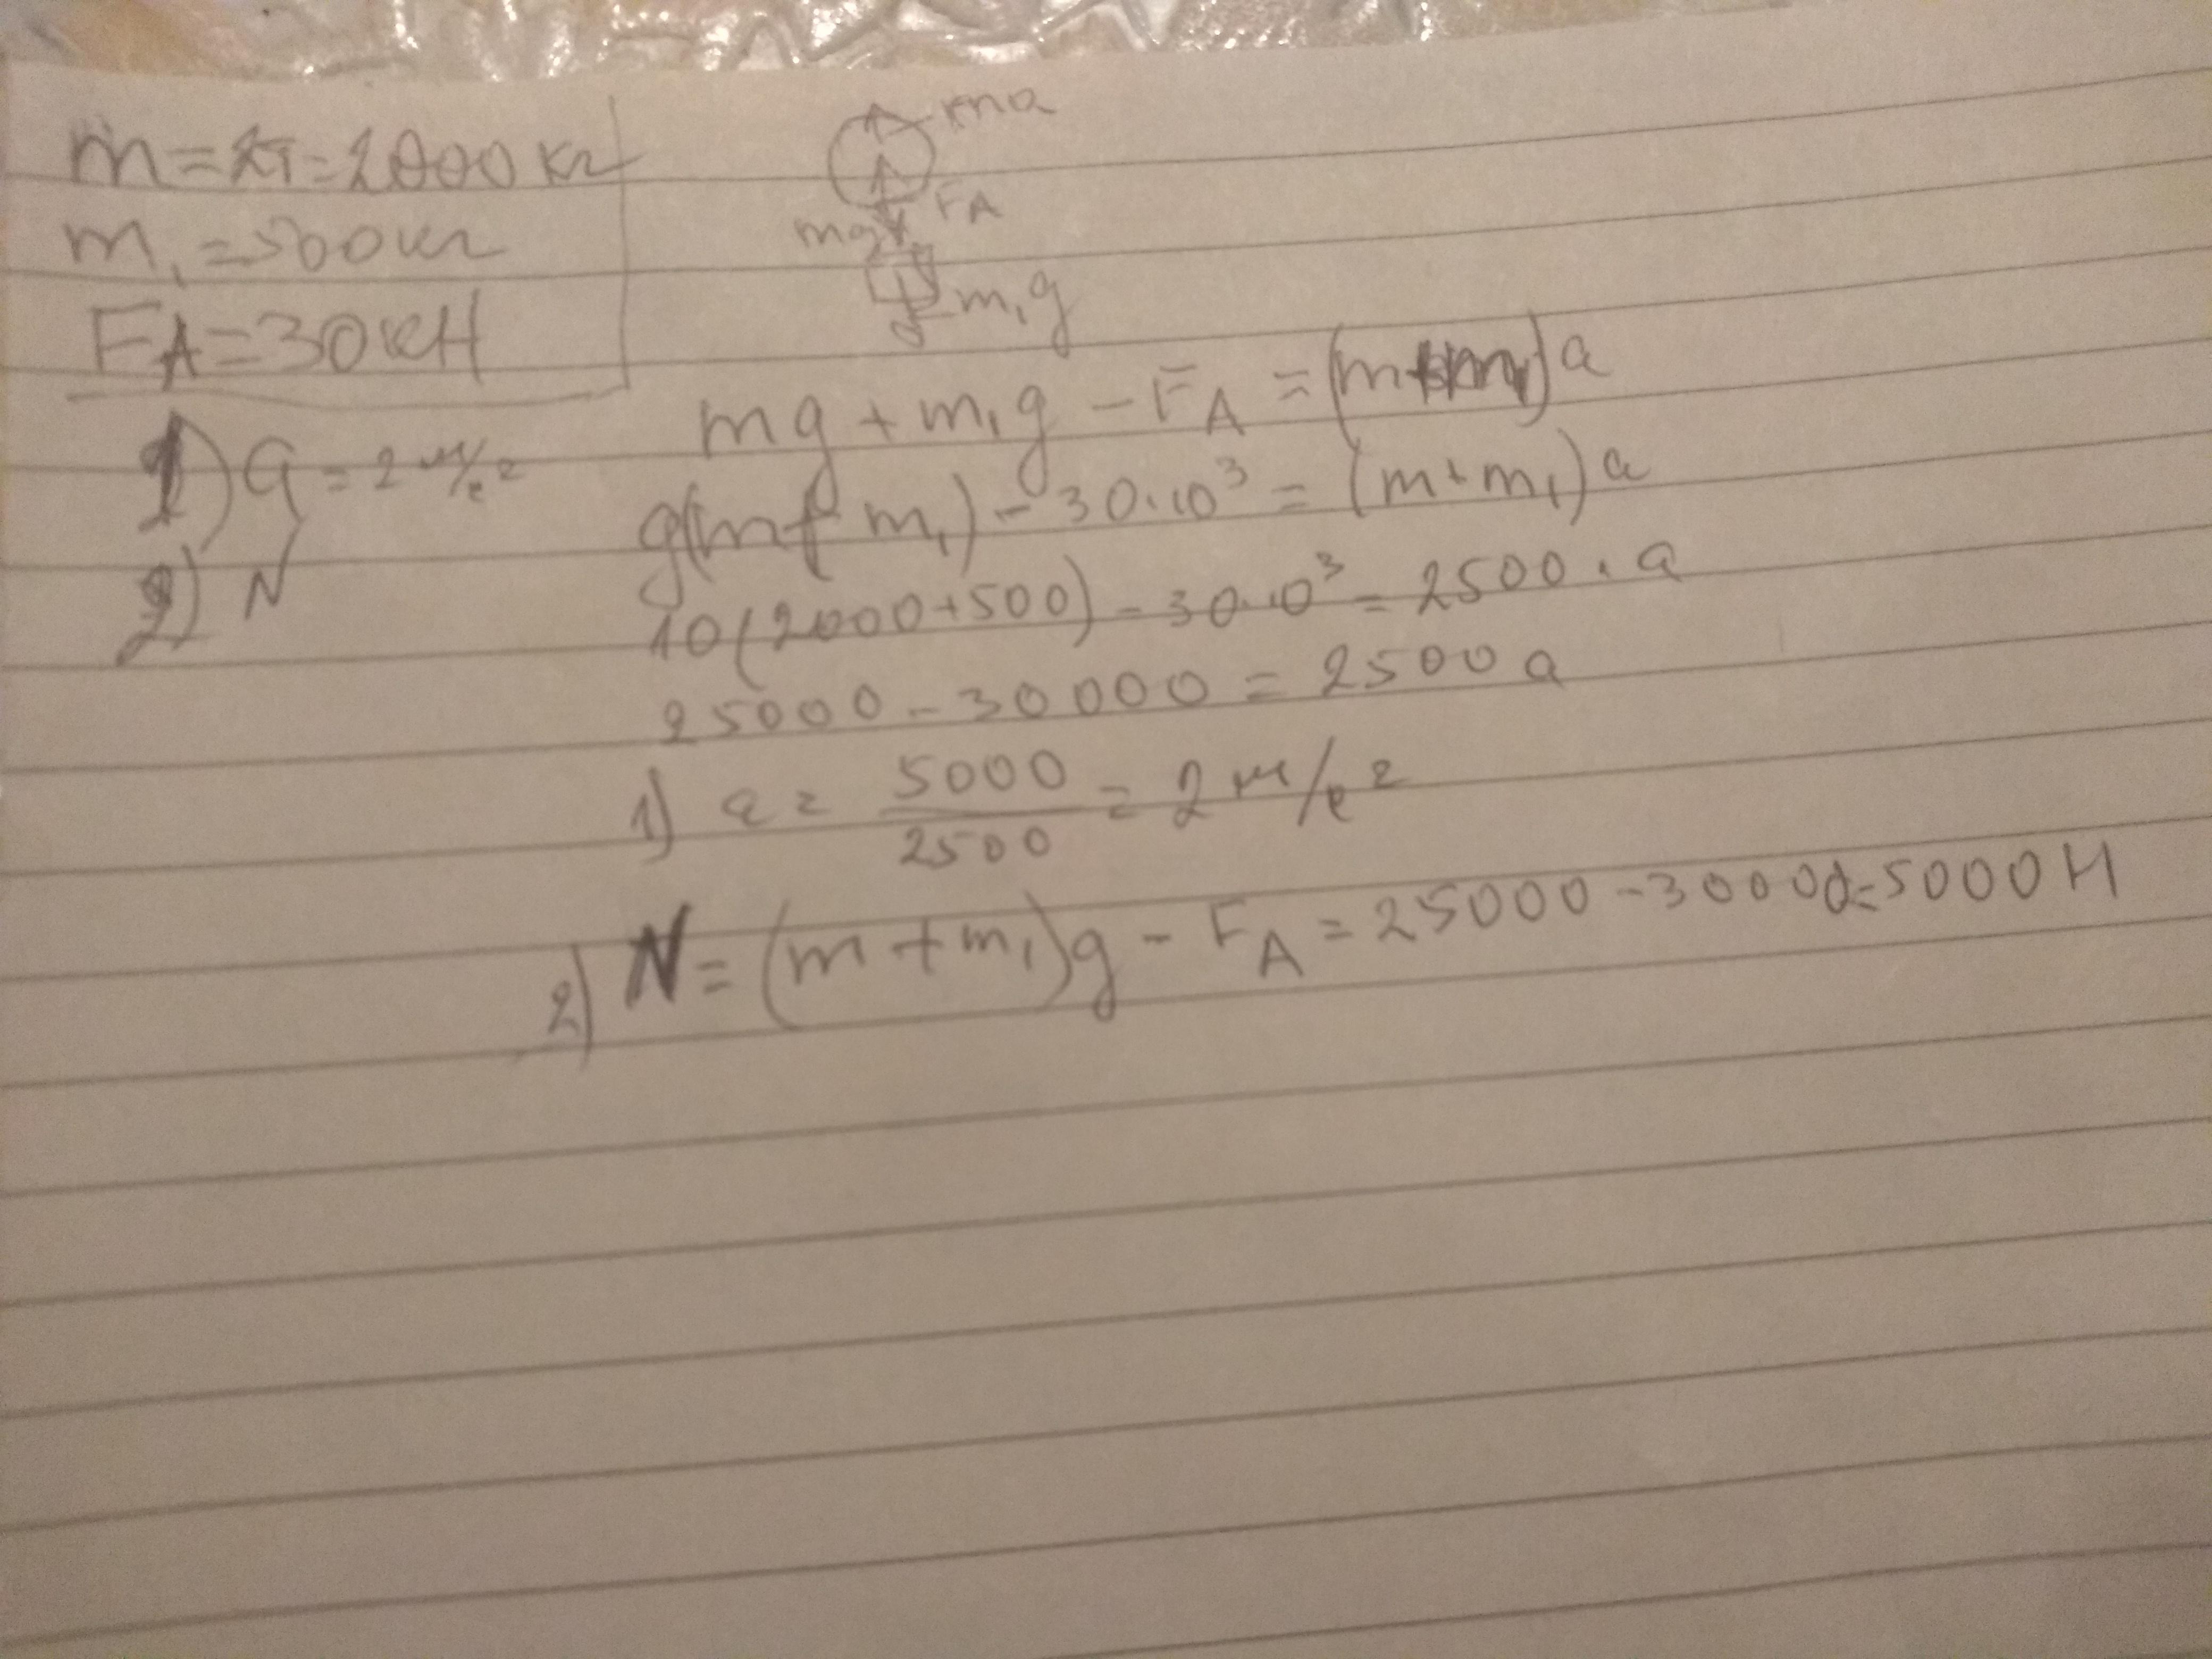 m = 2т = 2000 кг
m₁ = 500 кг
F_A = 30 кН
1) a = 2 м/с²
2) N
ma
F_A
mg
m₁g
mg + m₁g - F_A = (m+m₁)a
g(m+m₁) - 30·10³ = (m+m₁)a
10(2000+500) - 30·10³ = 2500·a
25000 - 30000 = 2500a
1) a = 5000/2500 = 2 м/с²
2) N = (m+m₁)g - F_A = 25000 - 30000 = 5000 Н